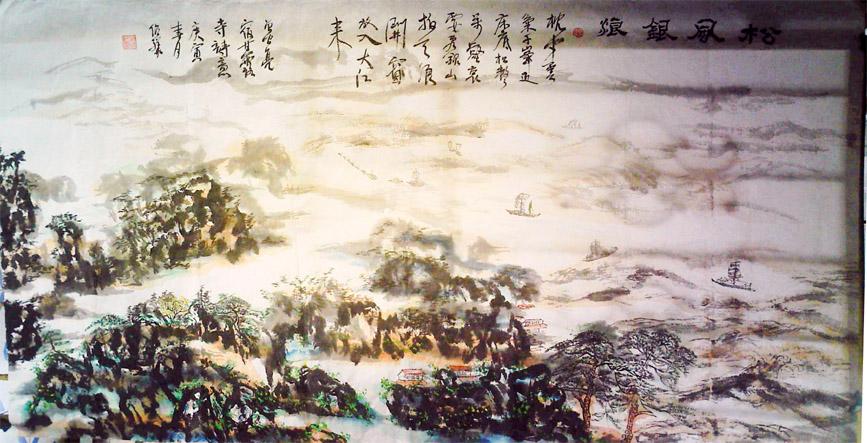 松風銀浪
枕中雲
氣千峯近
床底松聲
萬壑哀
要看銀山
拍天浪
開窗
放入大江
来
曾公亮
宿甘露
寺詩意
庚寅
春月